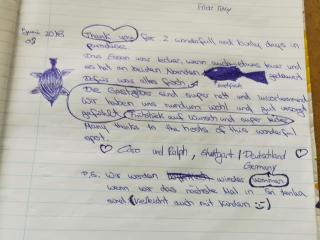 Juni 2018
08
Thank you for 2 wonderfull and lucky days in
paradise.
Das Essen war lecker, wenn auch etwas
es hat an beiden Abenden gedauert
Dafür war alles frisch
Die Gastgeber sind super nett und zuvorkommend
Wir haben uns rundum wohl und gut versorgt
gefühlt. Frühstück auf Wunsch und super
Many thanks to the hosts of this wonderful
spot.
♡ Caro und Ralph, Stuttgart / Deutschland ♡
Germany
P.S. Wir werden wieder kommen
wenn wir das nächste Mal in Sri Lanka
sind (vielleicht auch mit Kindern :-))